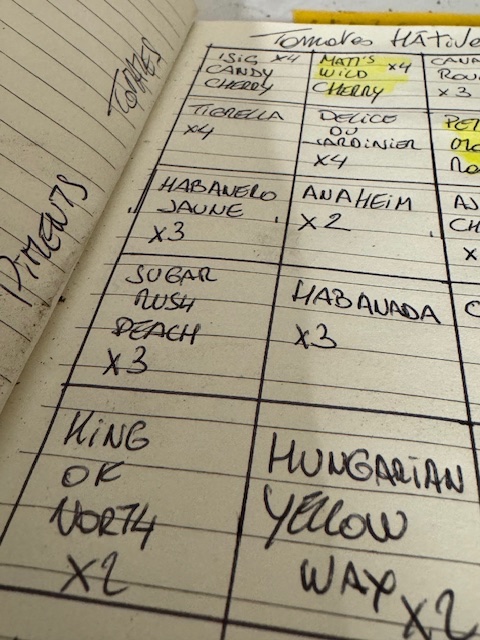 Tomates Hâtive
TOMATES
ISIG x4
CANDY
CHERRY
MATT'S
WILD x4
CHERRY
CANA
ROU
x3
TIGRELLA
x4
DELICE
DU
JARDINIER
x4
PET
PIMENTS
HABANERO
JAUNE
x3
ANAHEIM
x2
AJ
CH
x
SUGAR
RUSH
PEACH
x3
HABANADA
x3
C
KING
OF
NORTH
x2
HUNGARIAN
YELLOW
WAX x2